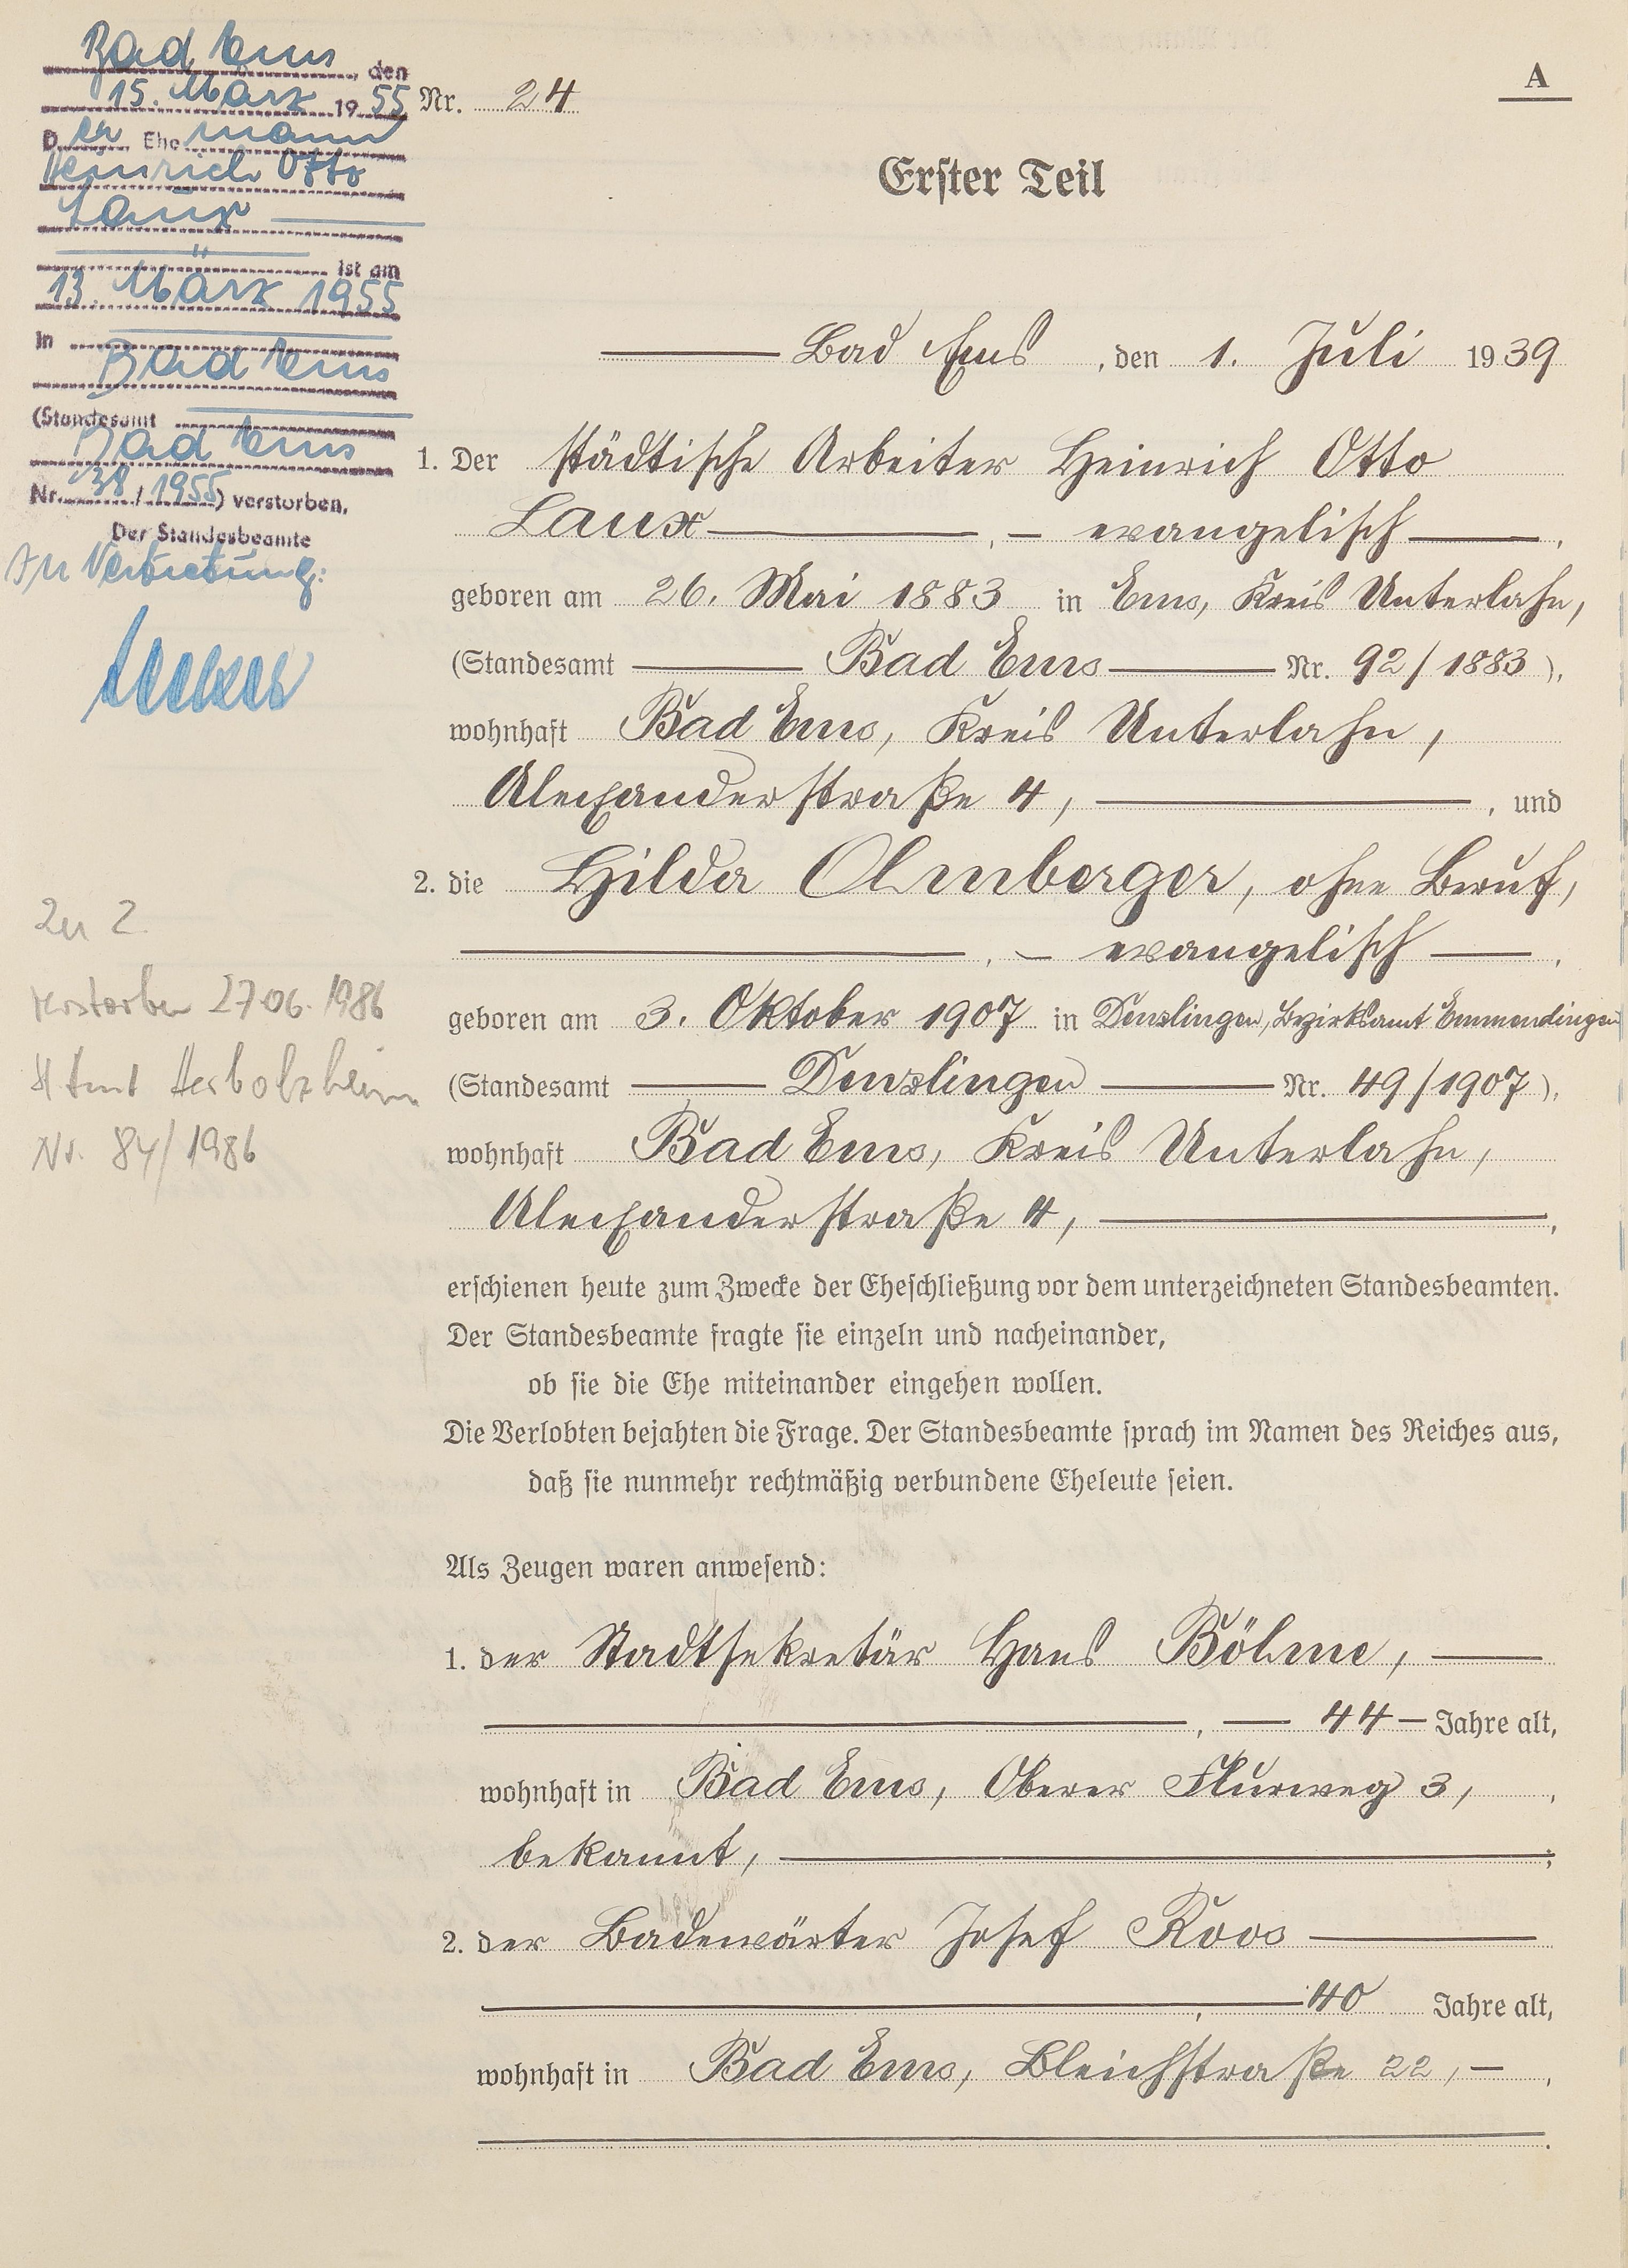 Bad Ems, den
15. März 1955
Der Ehemann
Heinrich Otto
Laux
ist am
13. März 1955
in
Bad Ems
(Standesamt
Bad Ems
Nr. 38/1955) verstorben.
Der Standesbeamte
In Vertretung:
Zu 2.
verstorben 27.06.1986
StAmt Herbolzheim
Nr. 84/1986
A
Nr. 24
Erster Teil
Bad Ems, den 1. Juli 1939
1. Der städtische Arbeiter Heinrich Otto
Laux, – evangelisch,
geboren am 26. Mai 1883 in Ems, Kreis Unterlahn,
(Standesamt Bad Ems Nr. 92/1883),
wohnhaft Bad Ems, Kreis Unterlahn,
Alexanderstraße 4, , und
2. die Hilda Ohnberger, ohne Beruf,
, – evangelisch,
geboren am 3. Oktober 1907 in Denzlingen, Bezirksamt Emmendingen
(Standesamt Denzlingen Nr. 49/1907),
wohnhaft Bad Ems, Kreis Unterlahn,
Alexanderstraße 4, ,
erschienen heute zum Zwecke der Eheschließung vor dem unterzeichneten Standesbeamten.
Der Standesbeamte fragte sie einzeln und nacheinander,
ob sie die Ehe miteinander eingehen wollen.
Die Verlobten bejahten die Frage. Der Standesbeamte sprach im Namen des Reiches aus,
daß sie nunmehr rechtmäßig verbundene Eheleute seien.
Als Zeugen waren anwesend:
1. der Stadtsekretär Hans Böhme,
, – 44 – Jahre alt,
wohnhaft in Bad Ems, Oberer Flurweg 3, ,
bekannt, ;
2. der Badewärter Josef Roos
, 40 Jahre alt,
wohnhaft in Bad Ems, Bleichstraße 22, – ,
.